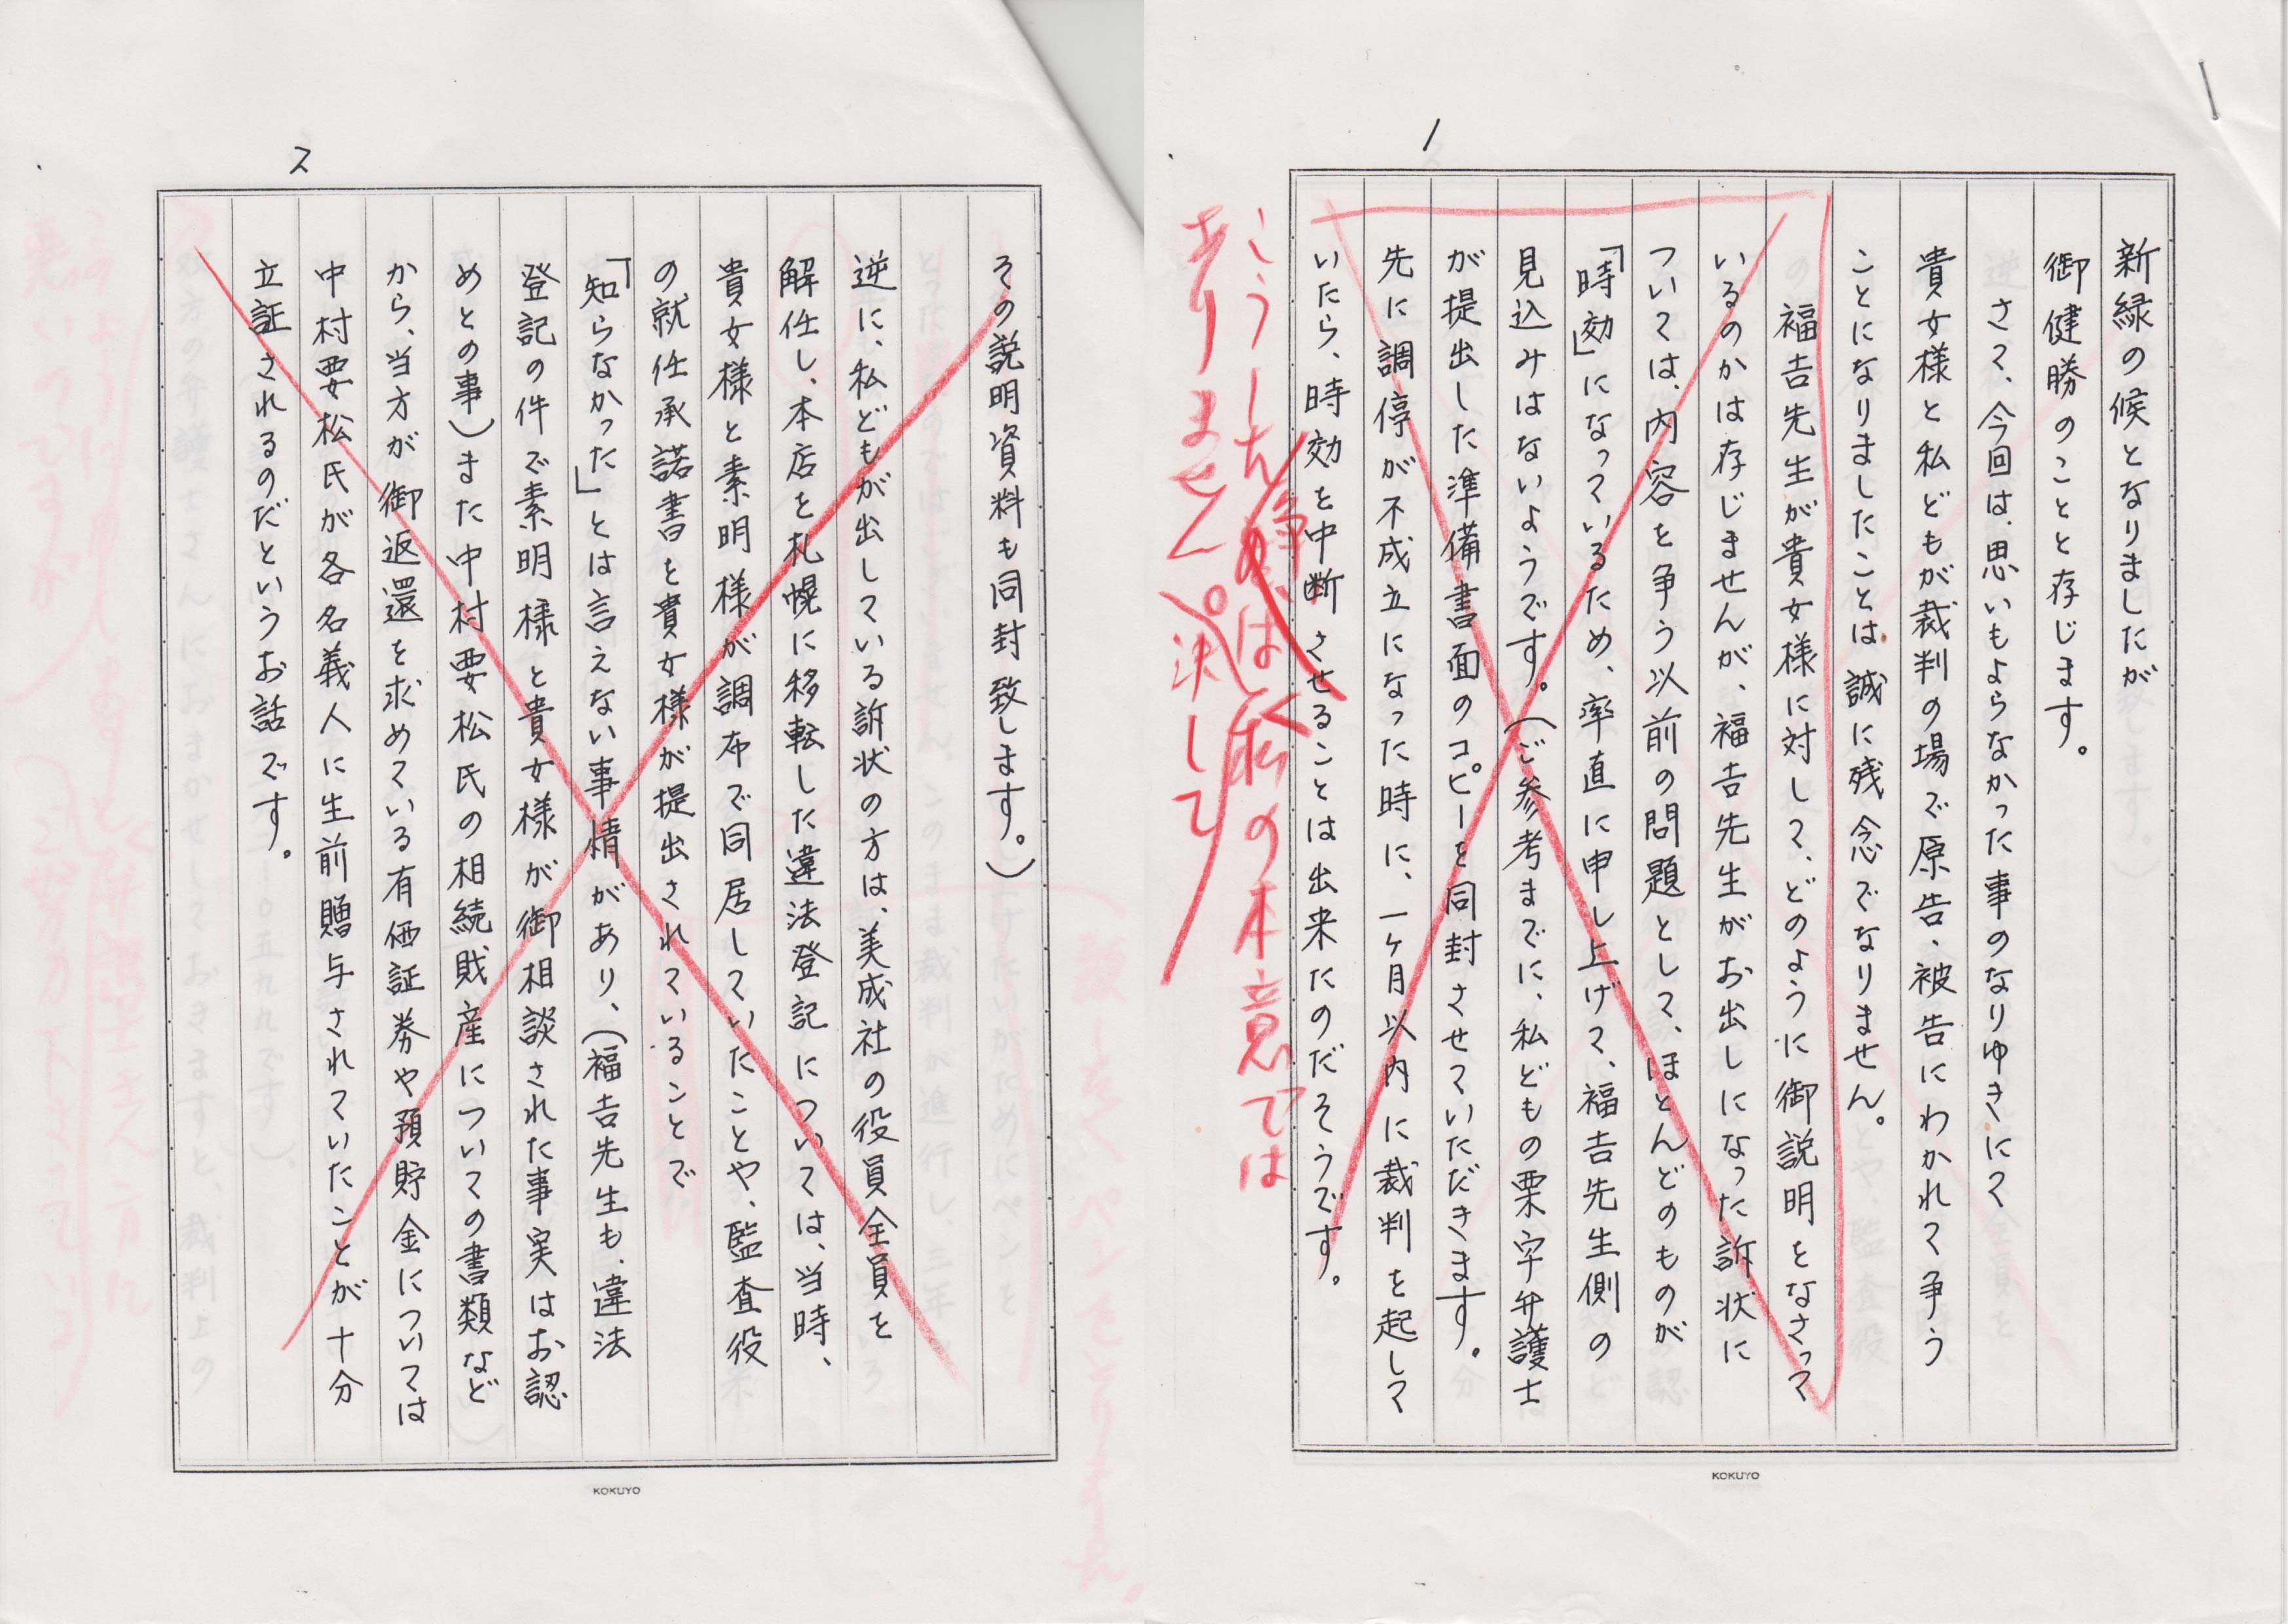 1
新緑の候となりましたが
御健勝のことと存じます。
さて、今回は、思いもよらなかった事のなりゆきにて
貴女様と私どもが裁判の場で原告、被告にわかれて争う
ことになりましたことは誠に残念でなりません。
福吉先生が貴女様に対して、どのように御説明をなさって
いるのかは存じませんが、福吉先生がお出しになった訴状に
ついては、内容を争う以前の問題として、ほとんどのものが
「時効」になっているため、率直に申し上げて、福吉先生側の
見込みはないようです。(ご参考までに、私どもの栗宇弁護士
が提出した準備書面のコピーを同封させていただきます。
先に調停が不成立になった時に、一ヶ月以内に裁判を起して
いたら、時効を中断させることは出来たのだそうです。
こうした争いは私の本意では
ありません。決して
2
その説明資料も同封致します。)
逆に、私どもが出している訴状の方は、美成社の役員全員を
解任し、本店を札幌に移転した違法登記については、当時、
貴女様と素明様が調布で同居していたことや、監査役
の就任承諾書を貴女様が提出されていることで
「知らなかった」とは言えない事情があり、(福吉先生も、違法
登記の件で素明様と貴女様が御相談された事実はお認
めとの事)また中村要松氏の相続財産についての書類など
から、当方が御返還を求めている有価証券や預貯金については
中村要松氏が各名義人に生前贈与されていたことが十分
立証されるのだというお話です。
KOKUYO
KOKUYO